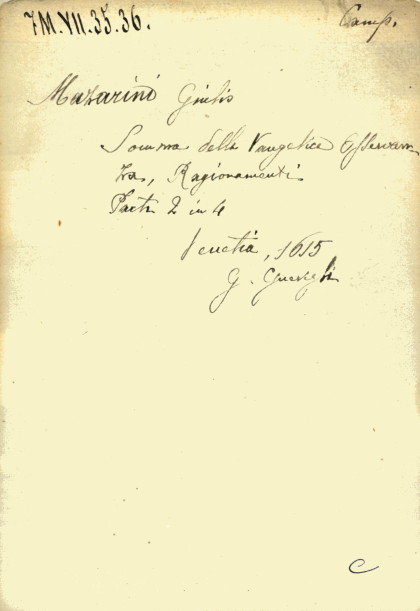 7M.VII.35.36.
Camp.
Mazarini Giulio
Somma della Vangelica Osservan
za, Ragionamenti
Parti 2 in 4
Venetia, 1615
G. Guerigli
C